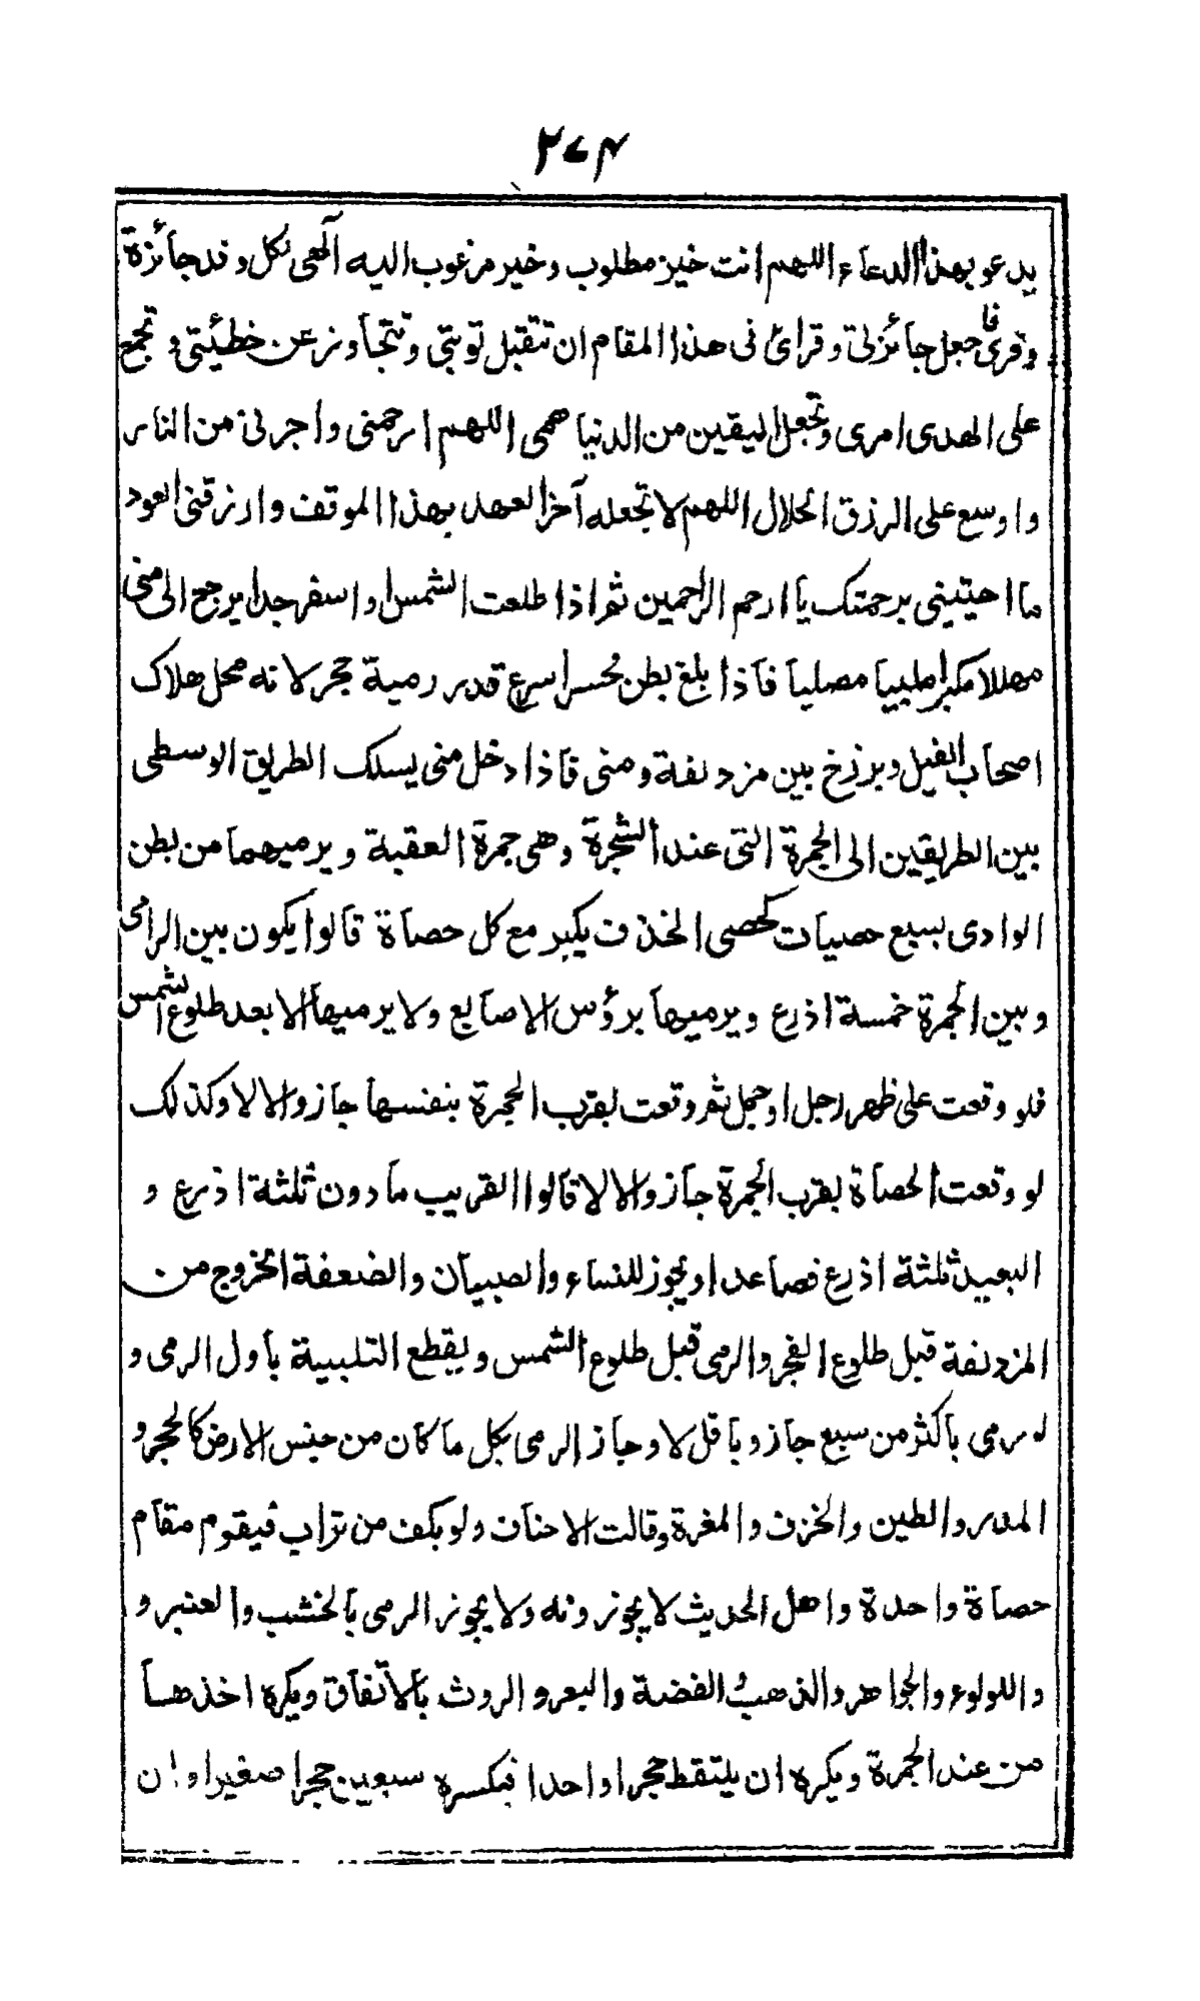 ۲۷۴
يدعو بهذا الدعاء اللهم انت خير مطلوب وخير مرغوب اليه آلهى لكل وفد جآئزة
وقرى فاجعل جآئزتى وقرائ فى هذا المقام ان تتقبل توبتى وتتجآوز عن خطئيتى وتجمع
على الهدى امرى وتجعل اليقين من الدنيا همى اللهم ارحمنى واجرنى من النار
واوسع على الرزق الحلال اللهم لا تجعله آخر العهد بهذا الموقف وارزقنى العود
ما احيتينى برحمتك يآ ارحم الراحمين ثم اذا طلعت الشمس او اسفر جدا يرجع الى منى
مهللا مكبرا ملبيا مصليا فآذا بلغ بطن محسر اسرع قدر رمية حجر لانه محل هلاك
اصحآب الفيل وبرزخ بين مزدلفة ومنى فآذا دخل منى يسلك الطريق الوسطى
بين الطريقين الى الجمرة التى عند الشجرة وهى جمرة العقبة ويرميهما من بطن
الوادى بسبع حصيات كحصى الخذف يكبر مع كل حصآة قآلوا يكون بين الرامى
وبين الجمرة خمسة اذرع ويرميهآ برؤس الاصآبع ولا يرميهآ الا بعد طلوع الشمس
فلو وقعت على ظهر رجل او جمل ثم وقعت بقرب الجمرة بنفسها جاز والا لا وكذلك
لو وقعت الحصآة بقرب الجمرة جآز والا لا قآلوا القريب مآ دون ثلثة اذرع و
البعيد ثلثة اذرع فصاعدا ويجوز للنساء والصبيآن والضعفة الخروج من
المزدلفة قبل طلوع الفجر والرمى قبل طلوع الشمس ويقطع التلبية بآول الرمى و
لو رمى بآكثر من سبع جآز وبآقل لا وجآز الرمى بكل مآ كآن من جنس الارض كالحجر و
المدر والطين والخزف والمغرة وقالت الاحنآف ولو بكف من تراب فيقوم مقآم
حصآة واحدة واهل الحديث لا يجوزونه ولا يجوز الرمى بآلخشب والعنبر و
واللولوء والجواهر والذهب والفضة والبعر والروث بآلاتفآق ويكره اخذهآ
من عند الجمرة ويكره ان يلتقط حجرا واحدا فيكسره سبعين حجرا صغيرا وان